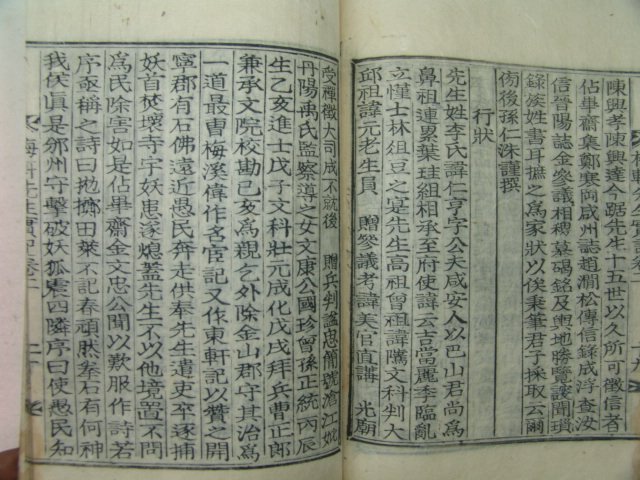 陳興孝今踞先生十五世以久所可徵信者
佔畢齋集鄭寒岡咸州誌趙澗松傳信錄成浮查汝
信晉陽誌金參議相稷墓碣銘及輿地勝覽謏聞瑣
錄族姓書耳摭之爲家狀以俟秉筆君子採取云爾
侑後孫仁洙謹撰
行狀
先生姓李氏諱仁亨字公夫咸安人以巴山君尚爲
鼻祖連累葉珪組相承至府使諱云吉當麗季臨亂
立慬士林俎豆之宴先生高祖曾祖諱隲文科判大
邱祖諱元老生員 贈參議考諱美官直講 光廟
受禪徵大司成不就後 贈兵判諡忠簡號滄江妣
丹陽禹氏監察導之女文康公國珍曾孫正統丙辰
生乙亥進士戊子文科壯元成化戊戌拜兵曹正郎
兼承文院校勘己亥爲親乞外除金山郡守其治爲
一道最曹梅溪偉作名宦記又作東軒記以贊之開
寧郡有石佛遠近愚民奔走供奉先生遣吏卒逐捕
妖首焚壞寺宇妖患遂熄蓋先生不以他境置不問
爲民除害如是佔畢齋金文忠公聞以歎服作詩若
序亟稱之詩曰抛擲田萊不記春頑然拳石有何神
我侯眞是邠州守擊破妖狐震四隣序曰使愚民知
梅軒先生實記卷二